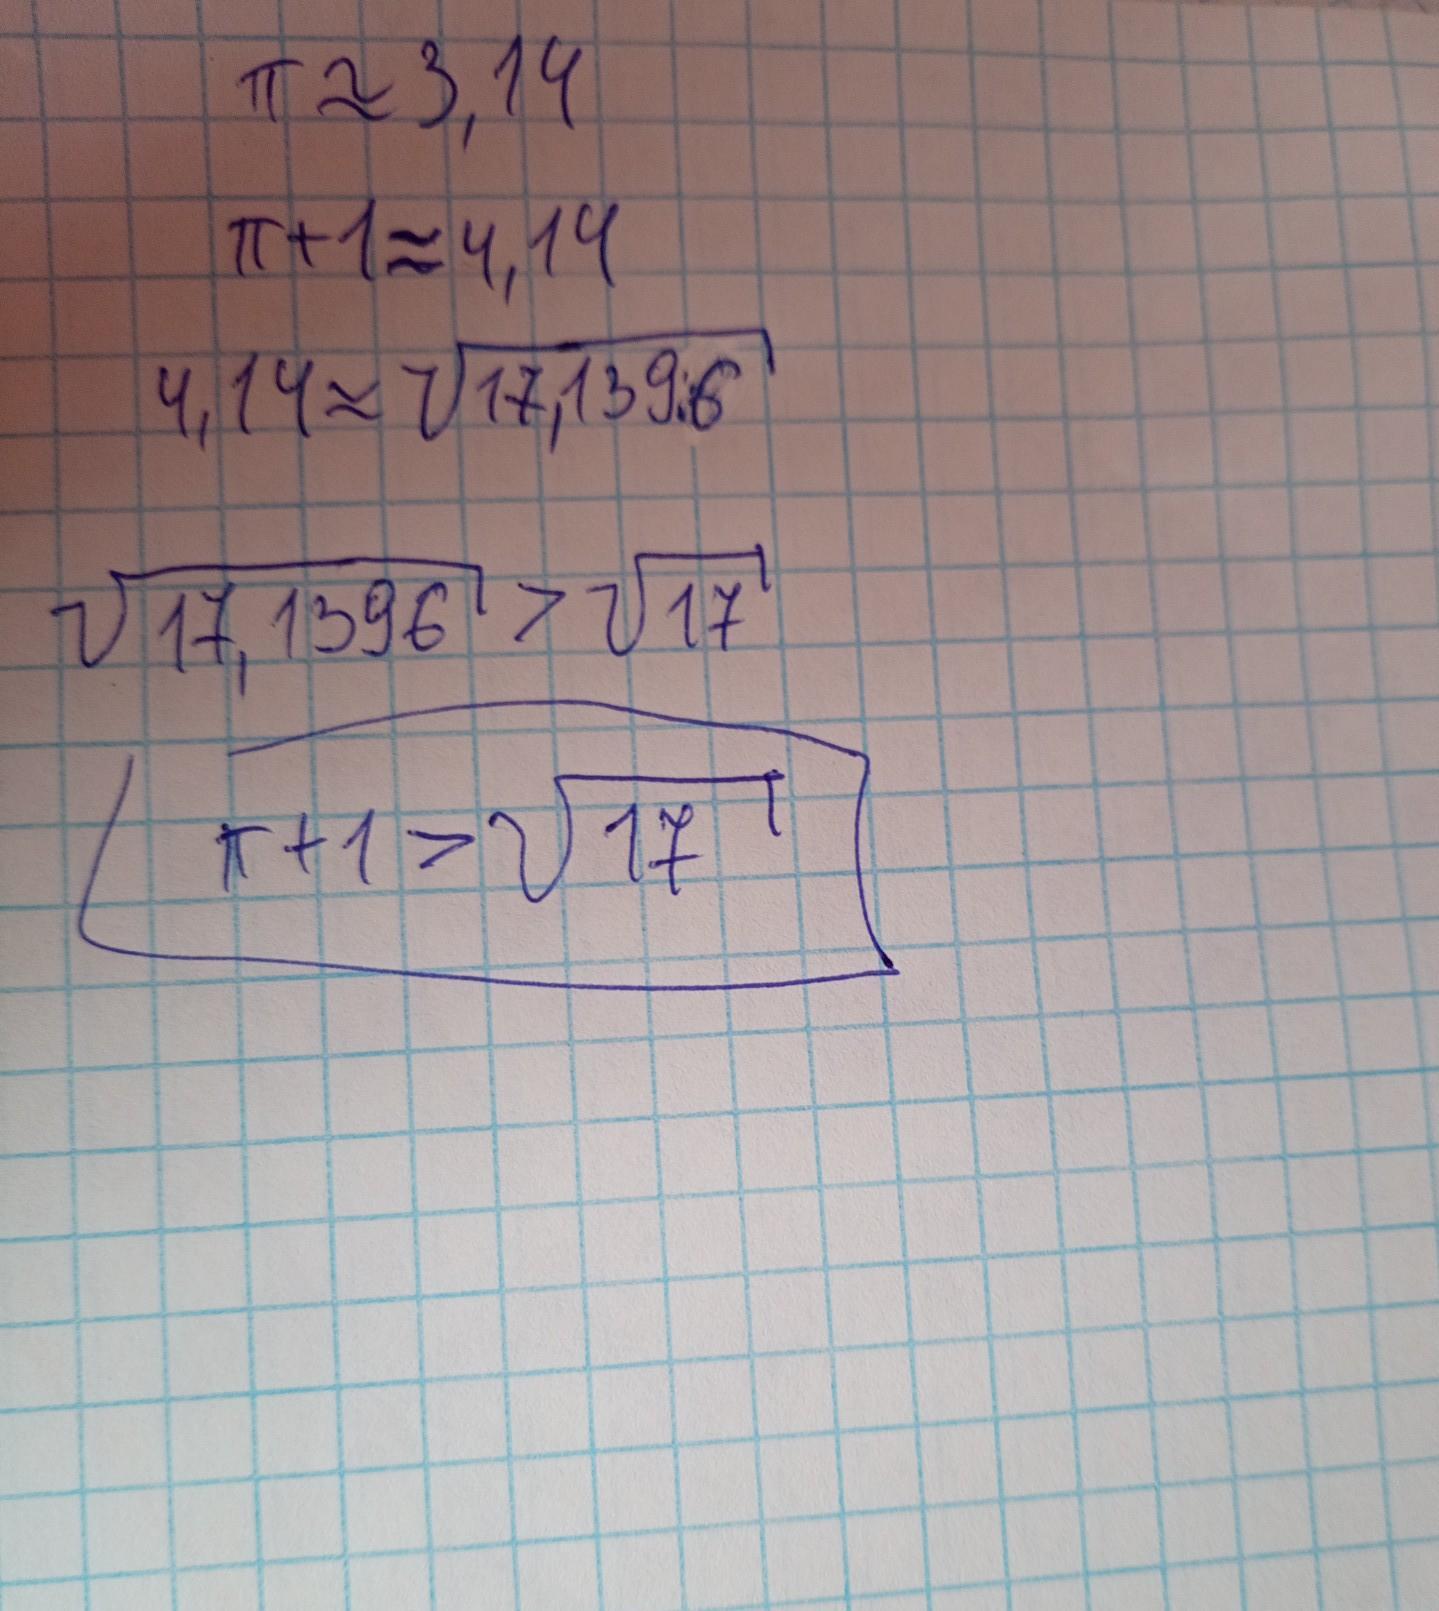 π ≈ 3,14
π+1≈4,14
4,14≈√17,1396
√17,1396 > √17
π+1>√17